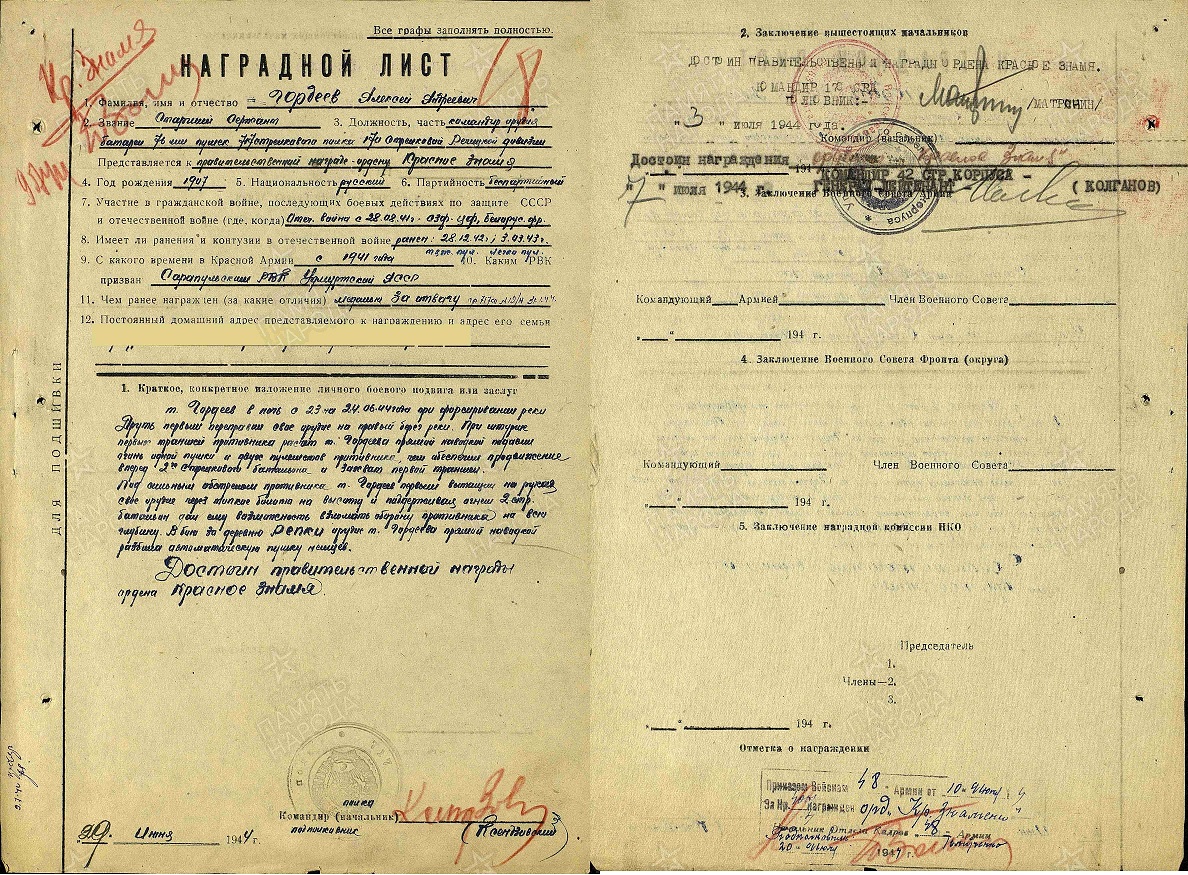 Все графы заполнять полностью.
Кр. Знамя
НАГРАДНОЙ ЛИСТ
1. Фамилия, имя и отчество Гордеев Алексей
2. Звание Старший Сержант 3. Должность, часть командир орудия
батареи 76 мм пушек стрелкового полка стрелковой Речицкой дивизии
Представляется к правительственной награде - ордену Красное Знамя
4. Год рождения 1907 5. Национальность русский 6. Партийность беспартийный
7. Участие в гражданской войне, последующих боевых действиях по защите СССР
и отечественной войне (где, когда) Отеч. война с 28.08.41г. Белорус. фр.
8. Имеет ли ранения и контузии в отечественной войне ранен: 28.12.42г. и 3.03.43г.
9. С какого времени в Красной Армии с 1941 года 10. Каким РВК
призван Сарапульским РВК Удмуртской АССР
11. Чем ранее награжден (за какие отличия) медалью За отвагу
12. Постоянный домашний адрес представляемого к награждению и адрес его семьи
ДЛЯ ПОДШИВКИ
1. Краткое, конкретное изложение личного боевого подвига или заслуг
т. Гордеев в ночь с 23 на 24.06.44 года при форсировании реки
Друть первым переправил свое орудие на правый берег реки. При штурме
первой траншеи противника расчет т. Гордеева прямой наводкой подавил
огонь одной пушки и двух пулеметов противника чем обеспечил продвижение
вперед 2го Стрелкового батальона и захват первой траншеи.
Под сильным обстрелом противника т. Гордеев первым вытащил на руках
свое орудие через топкое болото на высоту и поддерживая огнем 2 стр.
батальон дал ему возможность взломать оборону противника на всю
глубину. В бою за деревню Репки орудие т. Гордеева прямой наводкой
разбила автоматическую пушку немцев.
Достоин правительственной награды
ордена Красное Знамя.
полка
Командир (начальник)
подполковник
29. Июня 1944 г.
2. Заключение вышестоящих начальников
ДОСТОИН ПРАВИТЕЛЬСТВЕННОЙ НАГРАДЫ ОРДЕНА КРАСНОЕ ЗНАМЯ.
КОМАНДИР 170 СРД
ПОЛКОВНИК:- /МАТРОНИН/
"3" июля 1944 года.
Командир (начальник)
Достоин награждения орденом Красное Знамя
194
КОМАНДИР 42 СТР.КОРПУСА -
"7" июля 1944 г. ГЕНЕРАЛ-ЛЕЙТЕНАНТ (КОЛГАНОВ)
3. Заключение Военного Совета Армии
Командующий Армией Член Военного Совета
" " 194 г.
4. Заключение Военного Совета Фронта (округа)
Командующий Член Военного Совета
" " 194 г.
5. Заключение наградной комиссии НКО
Председатель
1.
Члены—2.
3.
" " 194 г.
Отметка о награждении
Приказом Войскам 48 - Армии от 10 Июля
За № награжден орд. Кр. Знамени
Начальник Отдела Кадров 48 - Армии
Подполковник
20 Июля 1944 г.
ПАМЯТЬ НАРОДА